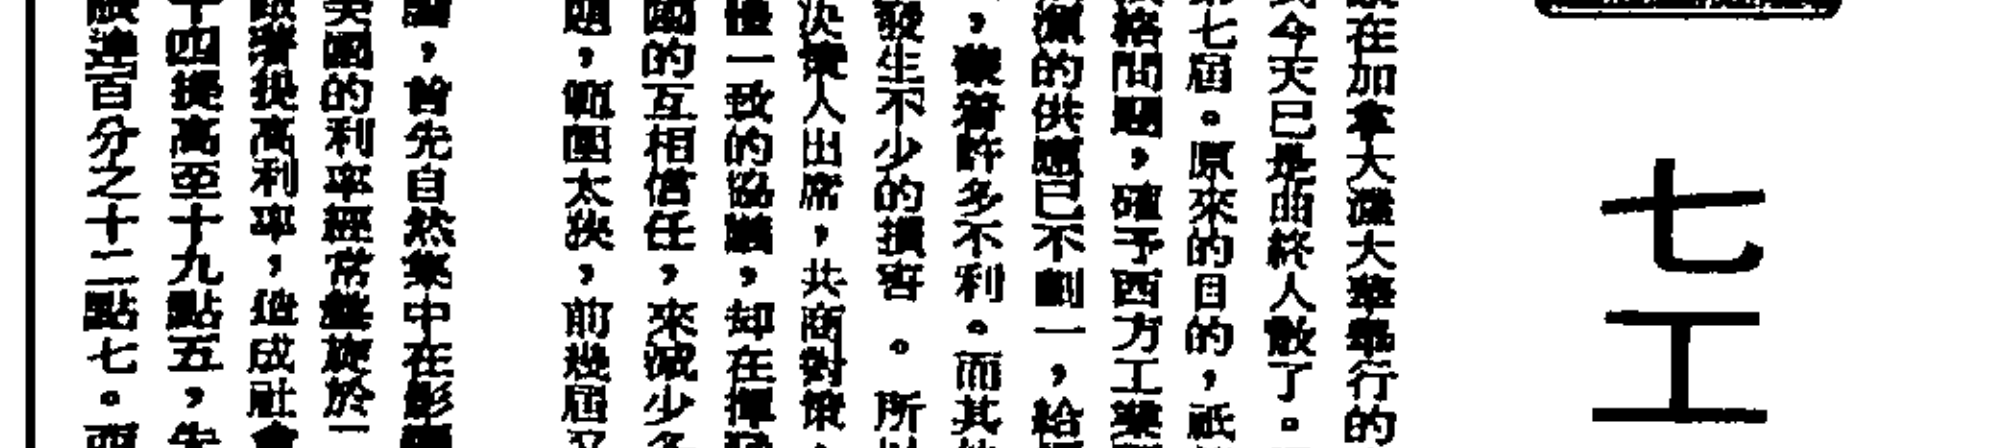 七工
在加拿大渥大華舉行的
今天已是曲終人散了。
七屆。原來的目的,祇
格問題,確予西方工業
源的供應已不劃一,給
,讓着許多不利。而其
發生不少的損害。所
決策人出席,共商對策,
一致的協議,却在揮
國的互相信任,來減少
題,範圍太狹,前幾屆又
,首先自然集中在影響
美國的利率經常盤旋於
着提高利率,造成社會
十四提高至十九點五,失
達百分之十二點七。西